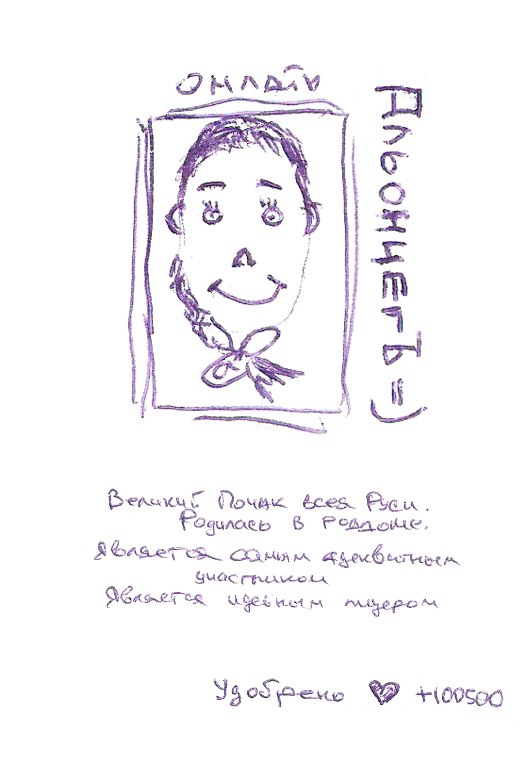 онлайн
АльончегЪ =)
Великий Почак всея Руси.
Родилась в роддоме.
Является самым адекватным
участником
Является идейным лидером
Удобрено ♥ +100500